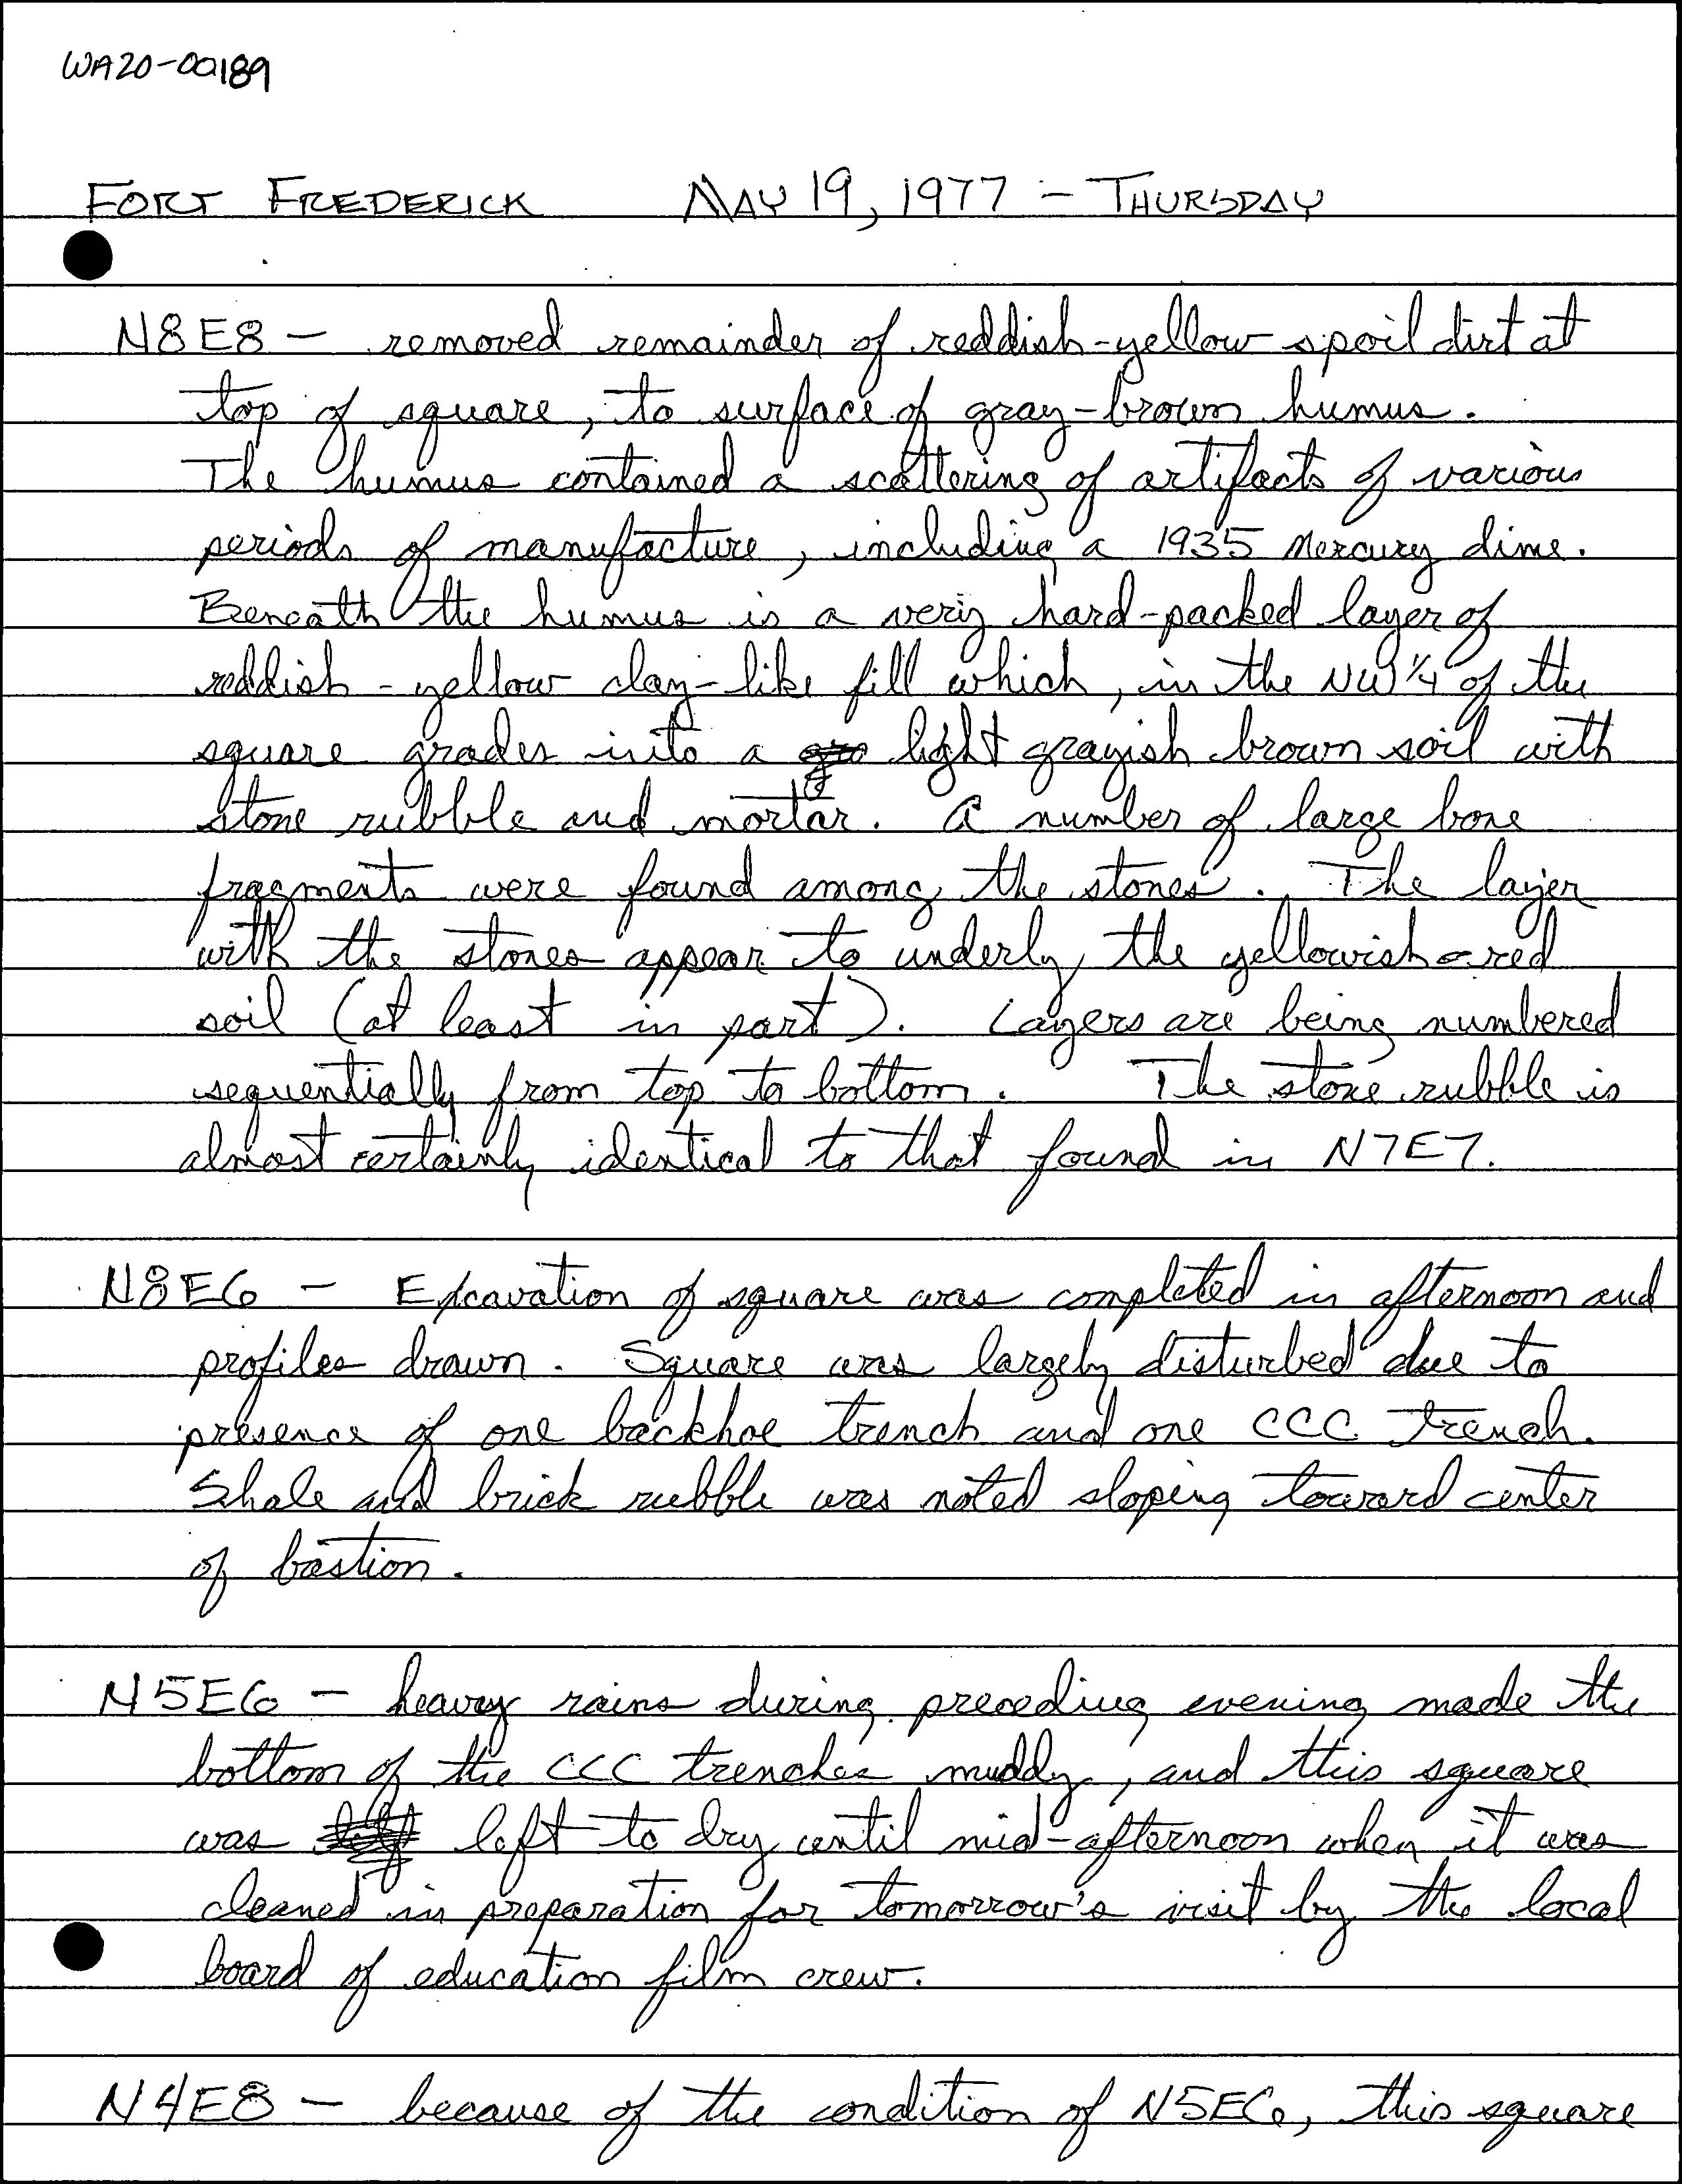 WA20-00189
FORT FREDERICK MAY 19, 1977 - THURSDAY
N8E8 - removed remainder of reddish-yellow spoil dirt at
top of square, to surface of gray-brown humus.
The humus contained a scattering of artifacts of various
periods of manufacture, including a 1935 Mercury dime.
Beneath the humus is a very hard-packed layer of
reddish-yellow clay-like fill which, in the NW 1/4 of the
square grades into a light grayish brown soil with
stone rubble and mortar. A number of large bone
fragments were found among the stones. The layer
with the stones appear to underly the yellowish-red
soil (at least in part). Layers are being numbered
sequentially from top to bottom. The stone rubble is
almost certainly identical to that found in N7E7.
N8E6 - Excavation of square was completed in afternoon and
profiles drawn. Square was largely disturbed due to
presence of one backhoe trench and one CCC trench.
Shale and brick rubble was noted sloping toward center
of bastion.
N5E6 - heavy rains during preceding evening made the
bottom of the CCC trenches muddy, and this square
was left to dry until mid-afternoon when it was
cleaned in preparation for tomorrow's visit by the local
board of education film crew.
N4E8 - because of the condition of N5E6, this square